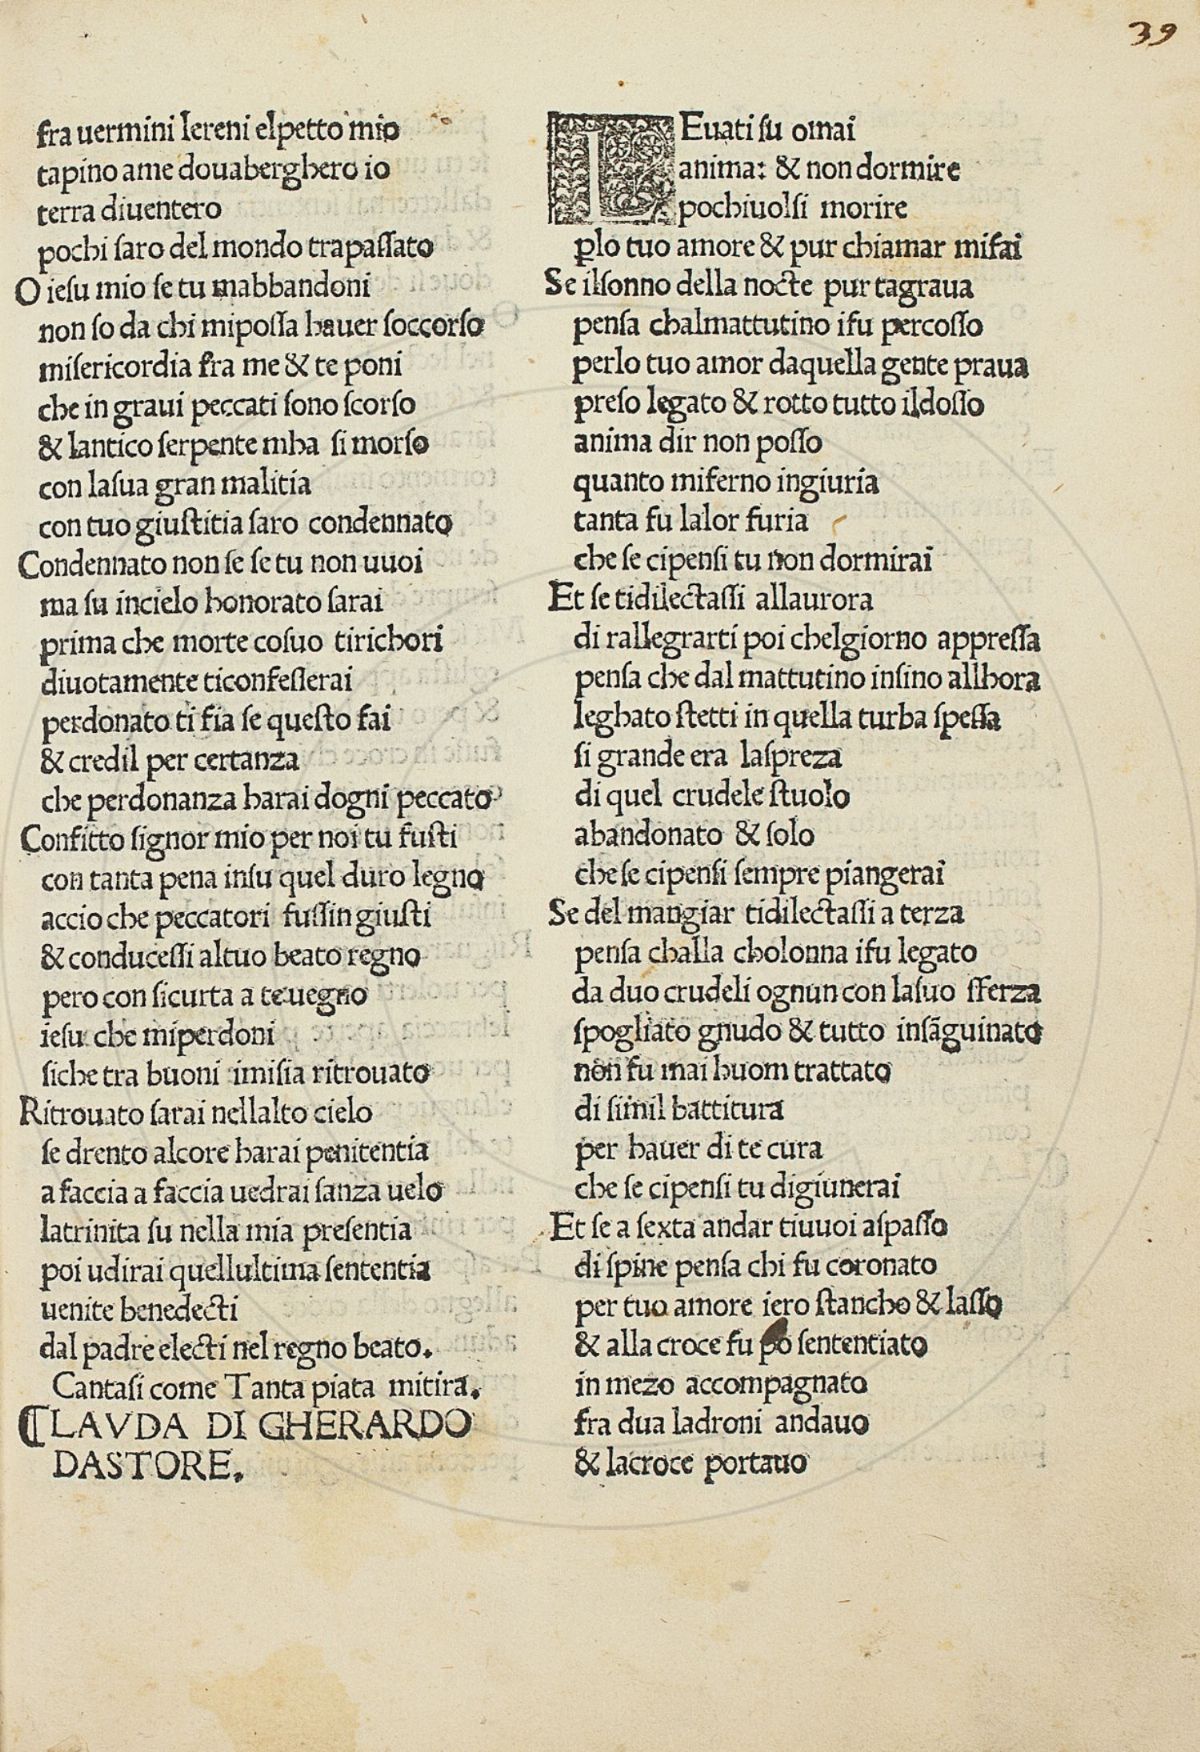 39
fra uermini sereni elpetto mio
tapino ame douaberghero io
terra diuentero
pochi saro del mondo trapassato
O iesu mio se tu mabbandoni
non so da chi mipossa hauer soccorso
misericordia fra me & te poni
che in graui peccati sono scorso
& lantico serpente mha si morso
con lasua gran malitia
con tuo giustitia saro condennato
Condennato non se se tu non uuoi
ma su incielo honorato sarai
prima che morte cosuo tirichori
diuotamente ticonfesserai
perdonato ti fia se questo fai
& credil per certanza
che perdonanza harai dogni peccato
Confitto signor mio per noi tu fusti
con tanta pena insu quel duro legno
accio che peccatori fussin giusti
& conducessi altuo beato regno
pero con sicurta a te uegno
iesu che miperdoni
siche tra buoni imisia ritrouato
Ritrouato sarai nellalto cielo
se drento alcore harai penitentia
a faccia a faccia uedrai sanza uelo
latrinita su nella mia presentia
poi udirai quellultima sententia
uenite benedecti
dal padre electi nel regno beato.
Cantasi come Tanta piata mitira.
¶LAVDA DI GHERARDO
DASTORE.
LEuati su omai
anima: & non dormire
pochiuolsi morire
ꝑlo tuo amore & pur chiamar mifai
Se ilsonno della nocte pur tagraua
pensa chalmattutino ifu percosso
perlo tuo amor daquella gente praua
preso legato & rotto tutto ildosso
anima dir non posso
quanto miferno ingiuria
tanta fu lalor furia
che se cipensi tu non dormirai
Et se tidilectassi allaurora
di rallegrarti poi chelgiorno appressa
pensa che dal mattutino insino allhora
leghato stetti in quella turba spessa
si grande era laspreza
di quel crudele stuolo
abandonato & solo
che se cipensi sempre piangerai
Se del mangiar tidilectassi a terza
pensa challa cholonna ifu legato
da duo crudeli ognun con lasuo sferza
spogliato gnudo & tutto insãguinato
non fu mai huom trattato
di simil battitura
per hauer di te cura
che se cipensi tu digiunerai
Et se a sexta andar tiuuoi aspasso
di spine pensa chi fu coronato
per tuo amore iero stancho & lasso
& alla croce fu po sententiato
in mezo accompagnato
fra dua ladroni andauo
& lacroce portauo